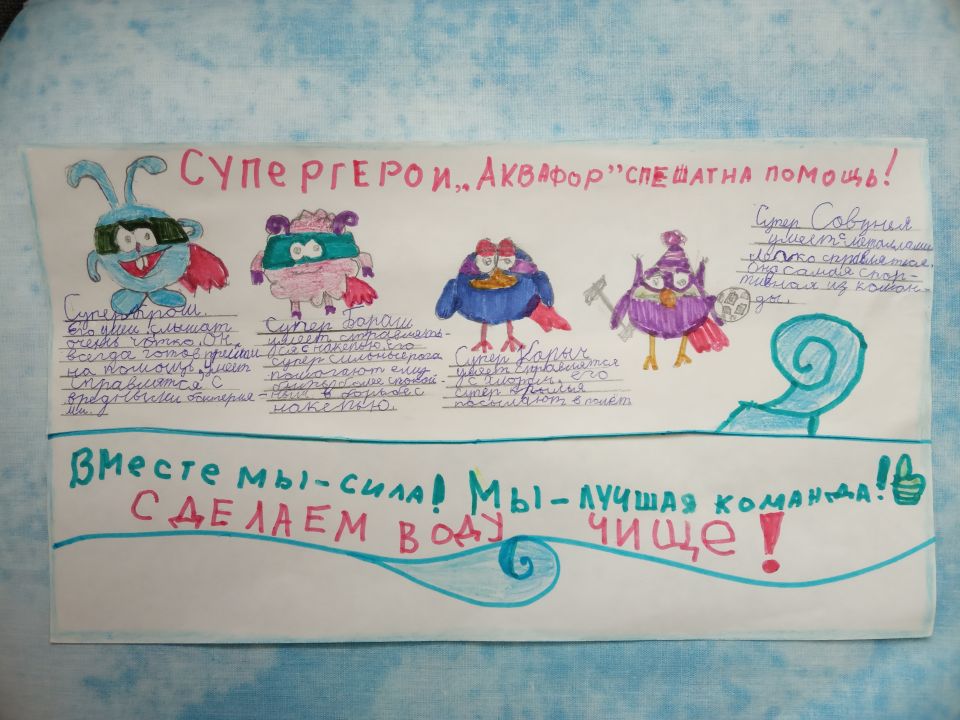 Супергерои „Аквафор” спешат на помощь!
Супер Крош.
Его уши слышат
очень чётко. Он
всегда готов прейти
на помощь, умеет
справлятся с
вредными бактерия-
ми.
Супер Бараш
умеет справлять-
ся с накепью, его
супер сильные рога
помогают ему
быть более спокой-
ным в борьбе с
накепью.
Супер Карыч
умеет справлятся
с хлором, его
супер крылья
посылают в полёт
Супер Совунья
умеет с металлами
легко справляться.
Она самая спор-
тивная из коман-
ды.
Вместе мы - сила! Мы - лучшая команда!
Сделаем воду чище!